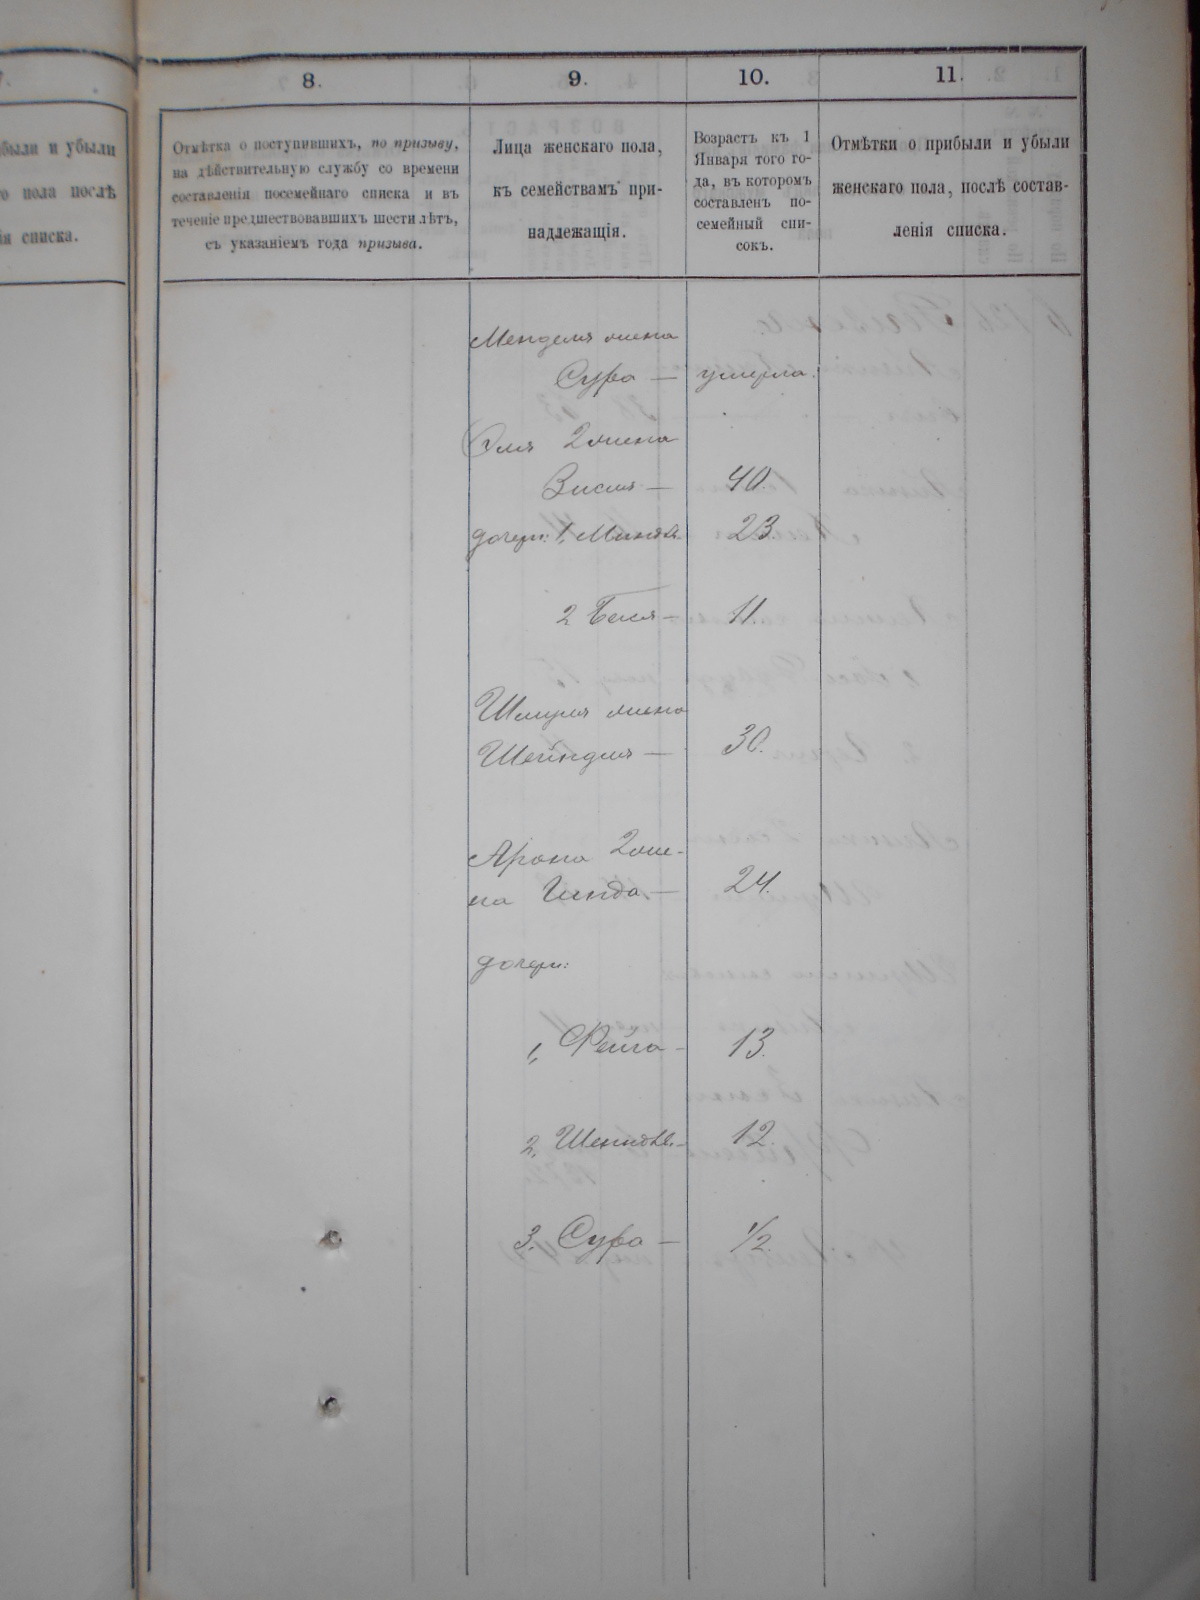 7.
были и убыли
го пола послѣ
ія списка.
8.
9.
10.
11.
Отмѣтка о поступившихъ, по призыву,
на дѣйствительную службу со времени
составленія посемейнаго списка и въ
теченіе предшествовавшихъ шести лѣтъ,
съ указаніемъ года призыва.
Лица женскаго пола,
къ семействамъ при-
надлежащія.
Возрастъ къ 1
Января того го-
да, въ которомъ
составленъ по-
семейный спи-
сокъ.
Отмѣтки о прибыли и убыли
женскаго пола, послѣ состав-
ленія списка.
Менделя жена
Сура — умерла.
Эля 2 жена
Висля — 40.
дочери: 1, Миндля 23.
2 Беля — 11.
Шмуля жена
Шейндля — 30.
Арона 2 же-
на Гинда — 24.
дочери:
1, Фейга - 13.
2, 12.
3. Сура — 1/2.